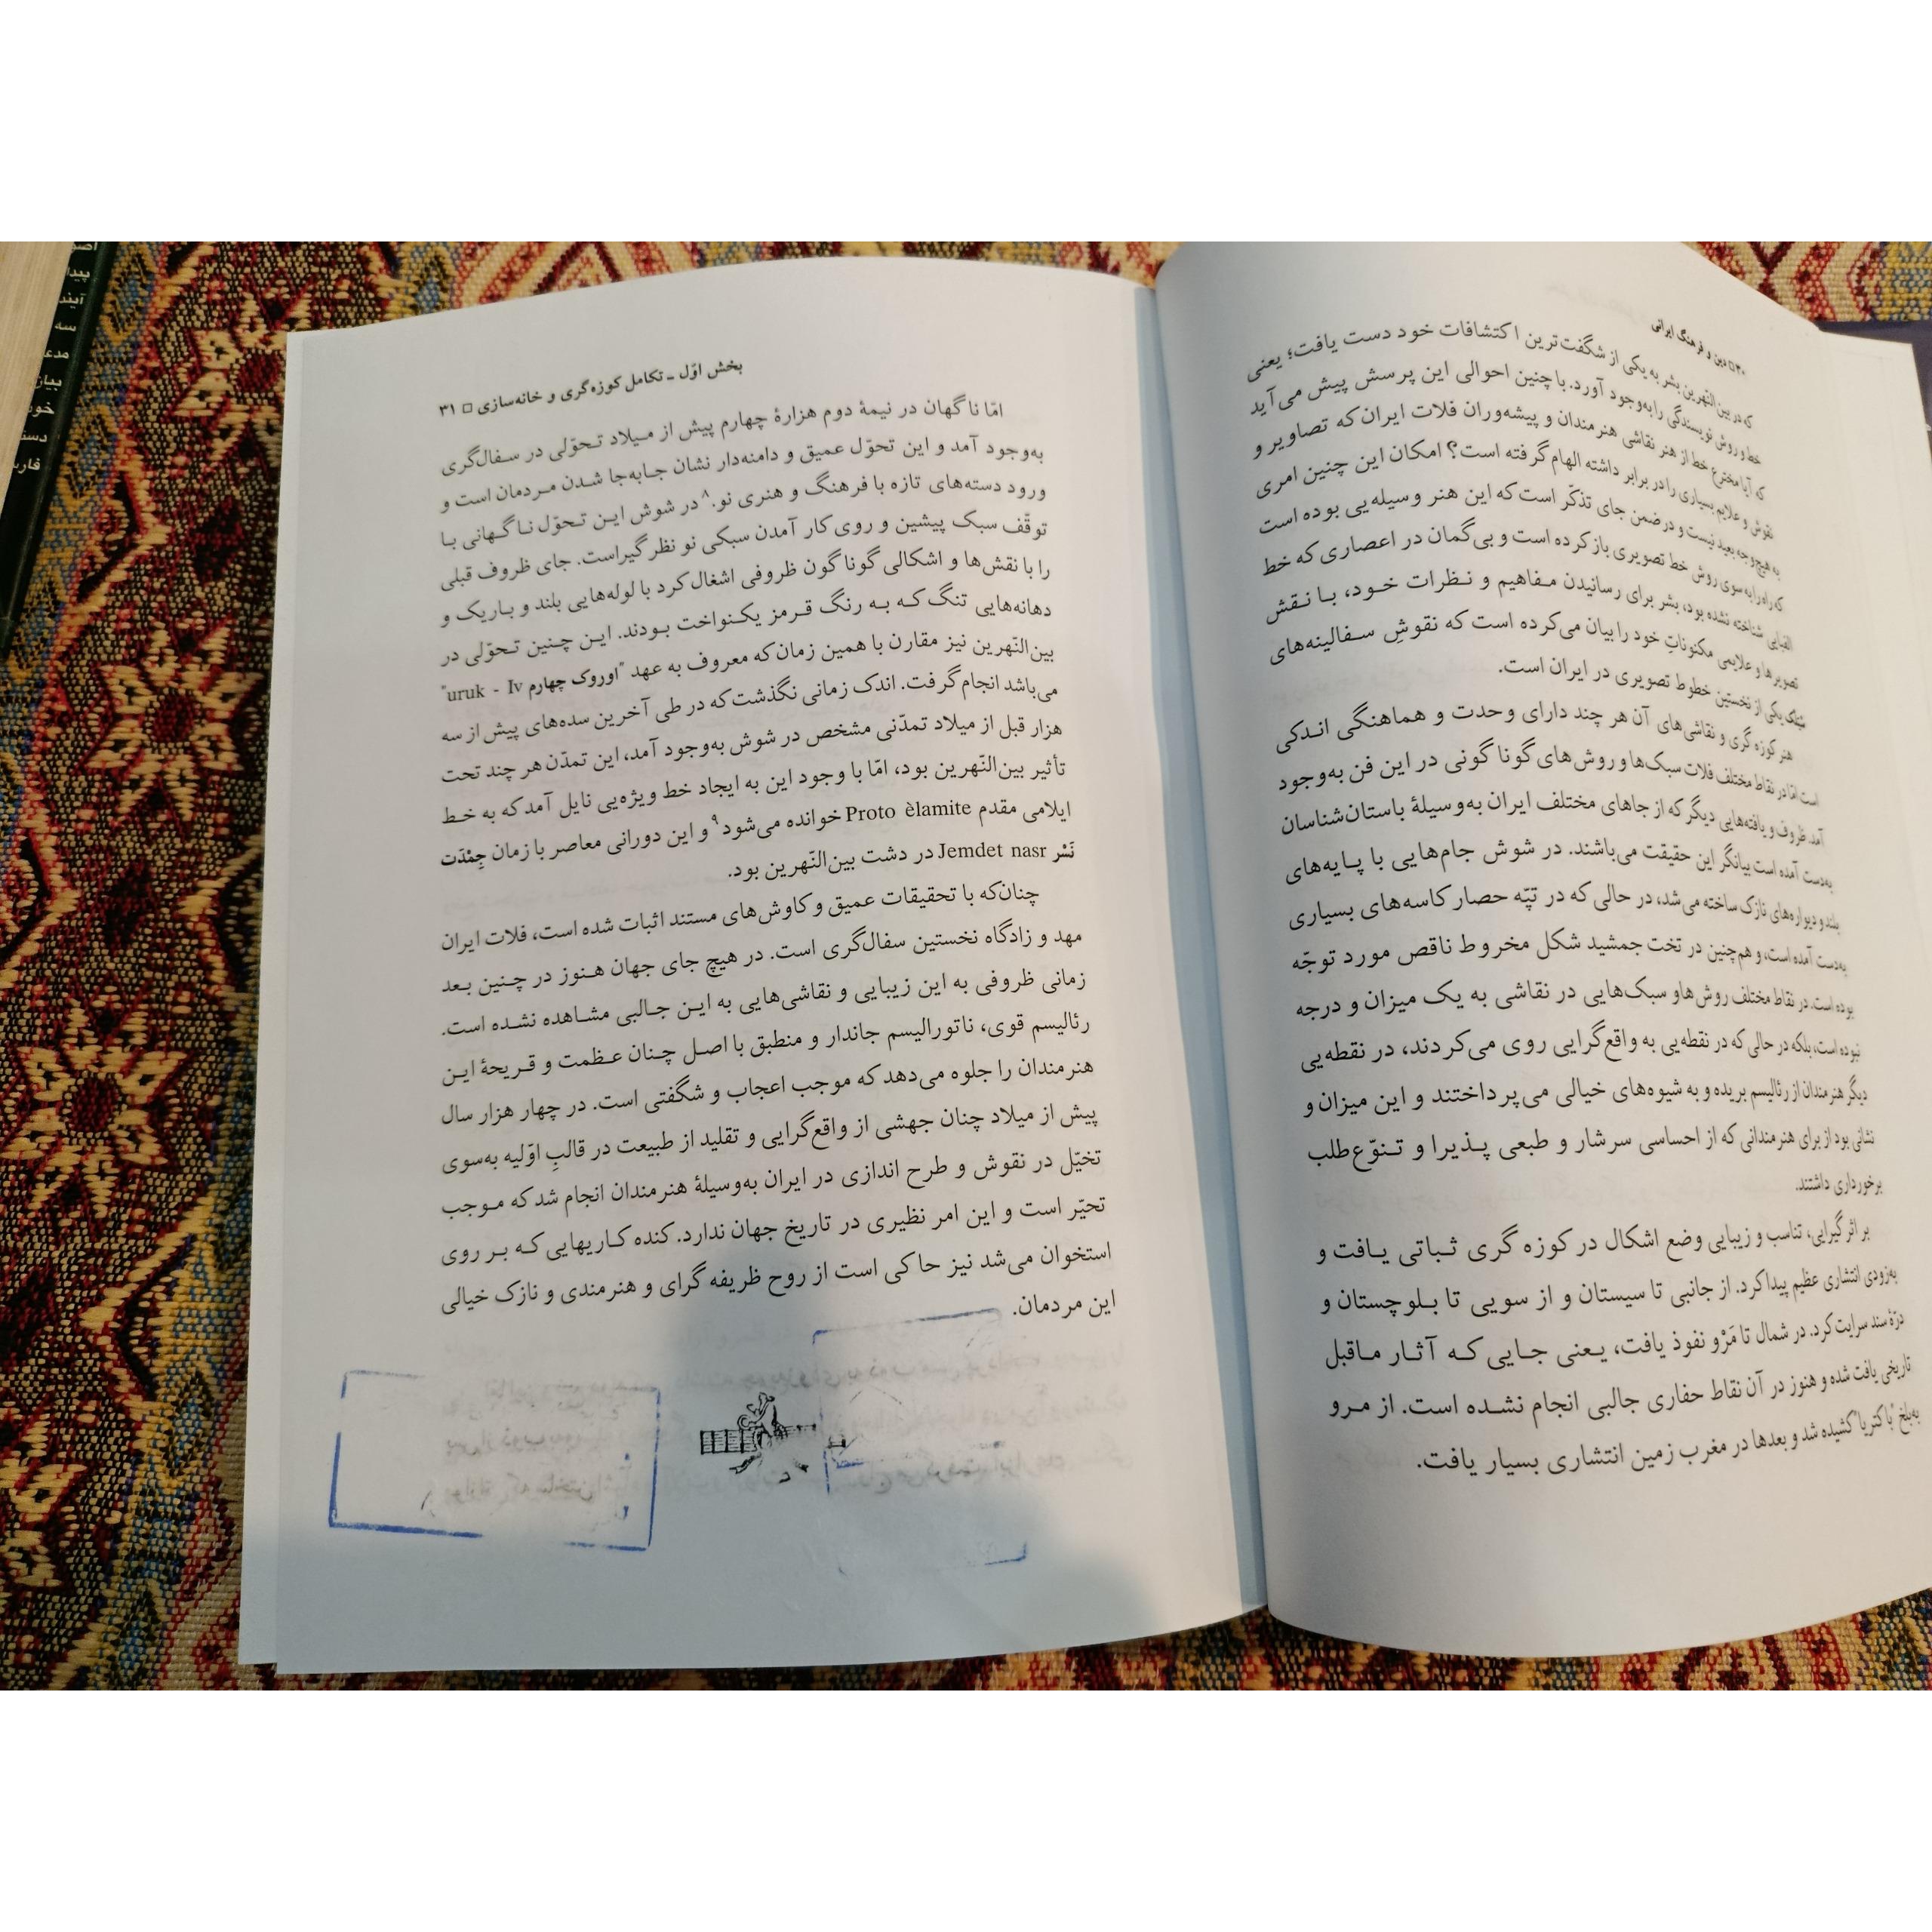 ۳۰ □ دین و فرهنگ ایرانی
که در بین‌النّهرین بشر به یکی از شگفت‌ترین اکتشافات خود دست یافت؛ یعنی
خط و روش نویسندگی را به‌وجود آورد. با چنین احوالی این پرسش پیش می‌آید
که آیا مخترع خط از هنر نقاشی هنرمندان و پیشه‌وران فلات ایران که تصاویر و
نقوش و علایم بسیاری را در برابر داشته الهام گرفته است؟ امکان این چنین امری
به هیچ‌وجه بعید نیست و در ضمن جای تذکّر است که این هنر وسیله‌یی بوده است
که راه را به سوی روش خط تصویری باز کرده است و بی‌گمان در اعصاری که خط
الفبایی شناخته نشده بود، بشر برای رسانیدن مفاهیم و نظرات خود، با نقش
تصویرها و علایمی مکنوناتِ خود را بیان می‌کرده است که نقوشِ سفالینه‌های
سیَلْک یکی از نخستین خطوط تصویری در ایران است.
هنر کوزه گری و نقاشی‌های آن هر چند دارای وحدت و هماهنگی اندکی
است امّا در نقاط مختلف فلات سبک‌ها و روش‌های گوناگونی در این فن به‌وجود
آمد. ظروف و یافته‌هایی دیگر که از جاهای مختلف ایران به‌وسیلهٔ باستان‌شناسان
به‌دست آمده است بیانگر این حقیقت می‌باشند. در شوش جام‌هایی با پایه‌های
بلند و دیواره‌های نازک ساخته می‌شد، در حالی که در تپّه حصار کاسه‌های بسیاری
به‌دست آمده است، و هم‌چنین در تخت جمشید شکل مخروط ناقص مورد توجّه
بوده است. در نقاط مختلف روش‌ها و سبک‌هایی در نقاشی به یک میزان و درجه
نبوده است، بلکه در حالی که در نقطه‌یی به واقع‌گرایی روی می‌کردند، در نقطه‌یی
دیگر هنرمندان از رئالیسم بریده و به شیوه‌های خیالی می‌پرداختند و این میزان و
نشانی بود از برای هنرمندانی که از احساسی سرشار و طبعی پذیرا و تنوّع‌طلب
برخورداری داشتند.
بر اثر گیرایی، تناسب و زیبایی وضع اشکال در کوزه گری ثباتی یافت و
به‌زودی انتشاری عظیم پیدا کرد. از جانبی تا سیستان و از سویی تا بلوچستان و
درّهٔ سند سرایت کرد. در شمال تا مَرْو نفوذ یافت، یعنی جایی که آثار ماقبل
تاریخی یافت شده و هنوز در آن نقاط حفاری جالبی انجام نشده است. از مرو
به بلخ "باکتریا" کشیده شد و بعدها در مغرب زمین انتشاری بسیار یافت.
بخش اوّل ـ تکامل کوزه‌گری و خانه‌سازی □ ۳۱
امّا ناگهان در نیمهٔ دوم هزارهٔ چهارم پیش از میلاد تحوّلی در سفال‌گری
به‌وجود آمد و این تحوّل عمیق و دامنه‌دار نشان جابه‌جا شدن مردمان است و
ورود دسته‌های تازه با فرهنگ و هنری نو.۸ در شوش این تحوّل ناگهانی با
توقّف سبک پیشین و روی کار آمدن سبکی نو نظرگیراست. جای ظروف قبلی
را با نقش‌ها و اشکالی گوناگون ظروفی اشغال کرد با لوله‌هایی بلند و باریک و
دهانه‌هایی تنگ که به رنگ قرمز یکنواخت بودند. این چنین تحوّلی در
بین‌النّهرین نیز مقارن با همین زمان که معروف به عهد "اوروک چهارم uruk - Iv"
می‌باشد انجام گرفت. اندک زمانی نگذشت که در طی آخرین سده‌های پیش از سه
هزار قبل از میلاد تمدّنی مشخص در شوش به‌وجود آمد، این تمدّن هر چند تحت
تأثیر بین‌النّهرین بود، امّا با وجود این به ایجاد خط ویژه‌یی نایل آمد که به خط
ایلامی مقدم Proto èlamite خوانده می‌شود۹ و این دورانی معاصر با زمان جِمْدَت
نَسْر Jemdet nasr در دشت بین‌النّهرین بود.
چنان‌که با تحقیقات عمیق و کاوش‌های مستند اثبات شده است، فلات ایران
مهد و زادگاه نخستین سفال‌گری است. در هیچ جای جهان هنوز در چنین بعد
زمانی ظروفی به این زیبایی و نقاشی‌هایی به این جالبی مشاهده نشده است.
رئالیسم قوی، ناتورالیسم جاندار و منطبق با اصل چنان عظمت و قریحهٔ این
هنرمندان را جلوه می‌دهد که موجب اعجاب و شگفتی است. در چهار هزار سال
پیش از میلاد چنان جهشی از واقع‌گرایی و تقلید از طبیعت در قالبِ اوّلیه به‌سوی
تخیّل در نقوش و طرح اندازی در ایران به‌وسیلهٔ هنرمندان انجام شد که موجب
تحیّر است و این امر نظیری در تاریخ جهان ندارد. کنده کاریهایی که بر روی
استخوان می‌شد نیز حاکی است از روح ظریفه گرای و هنرمندی و نازک خیالی
این مردمان.